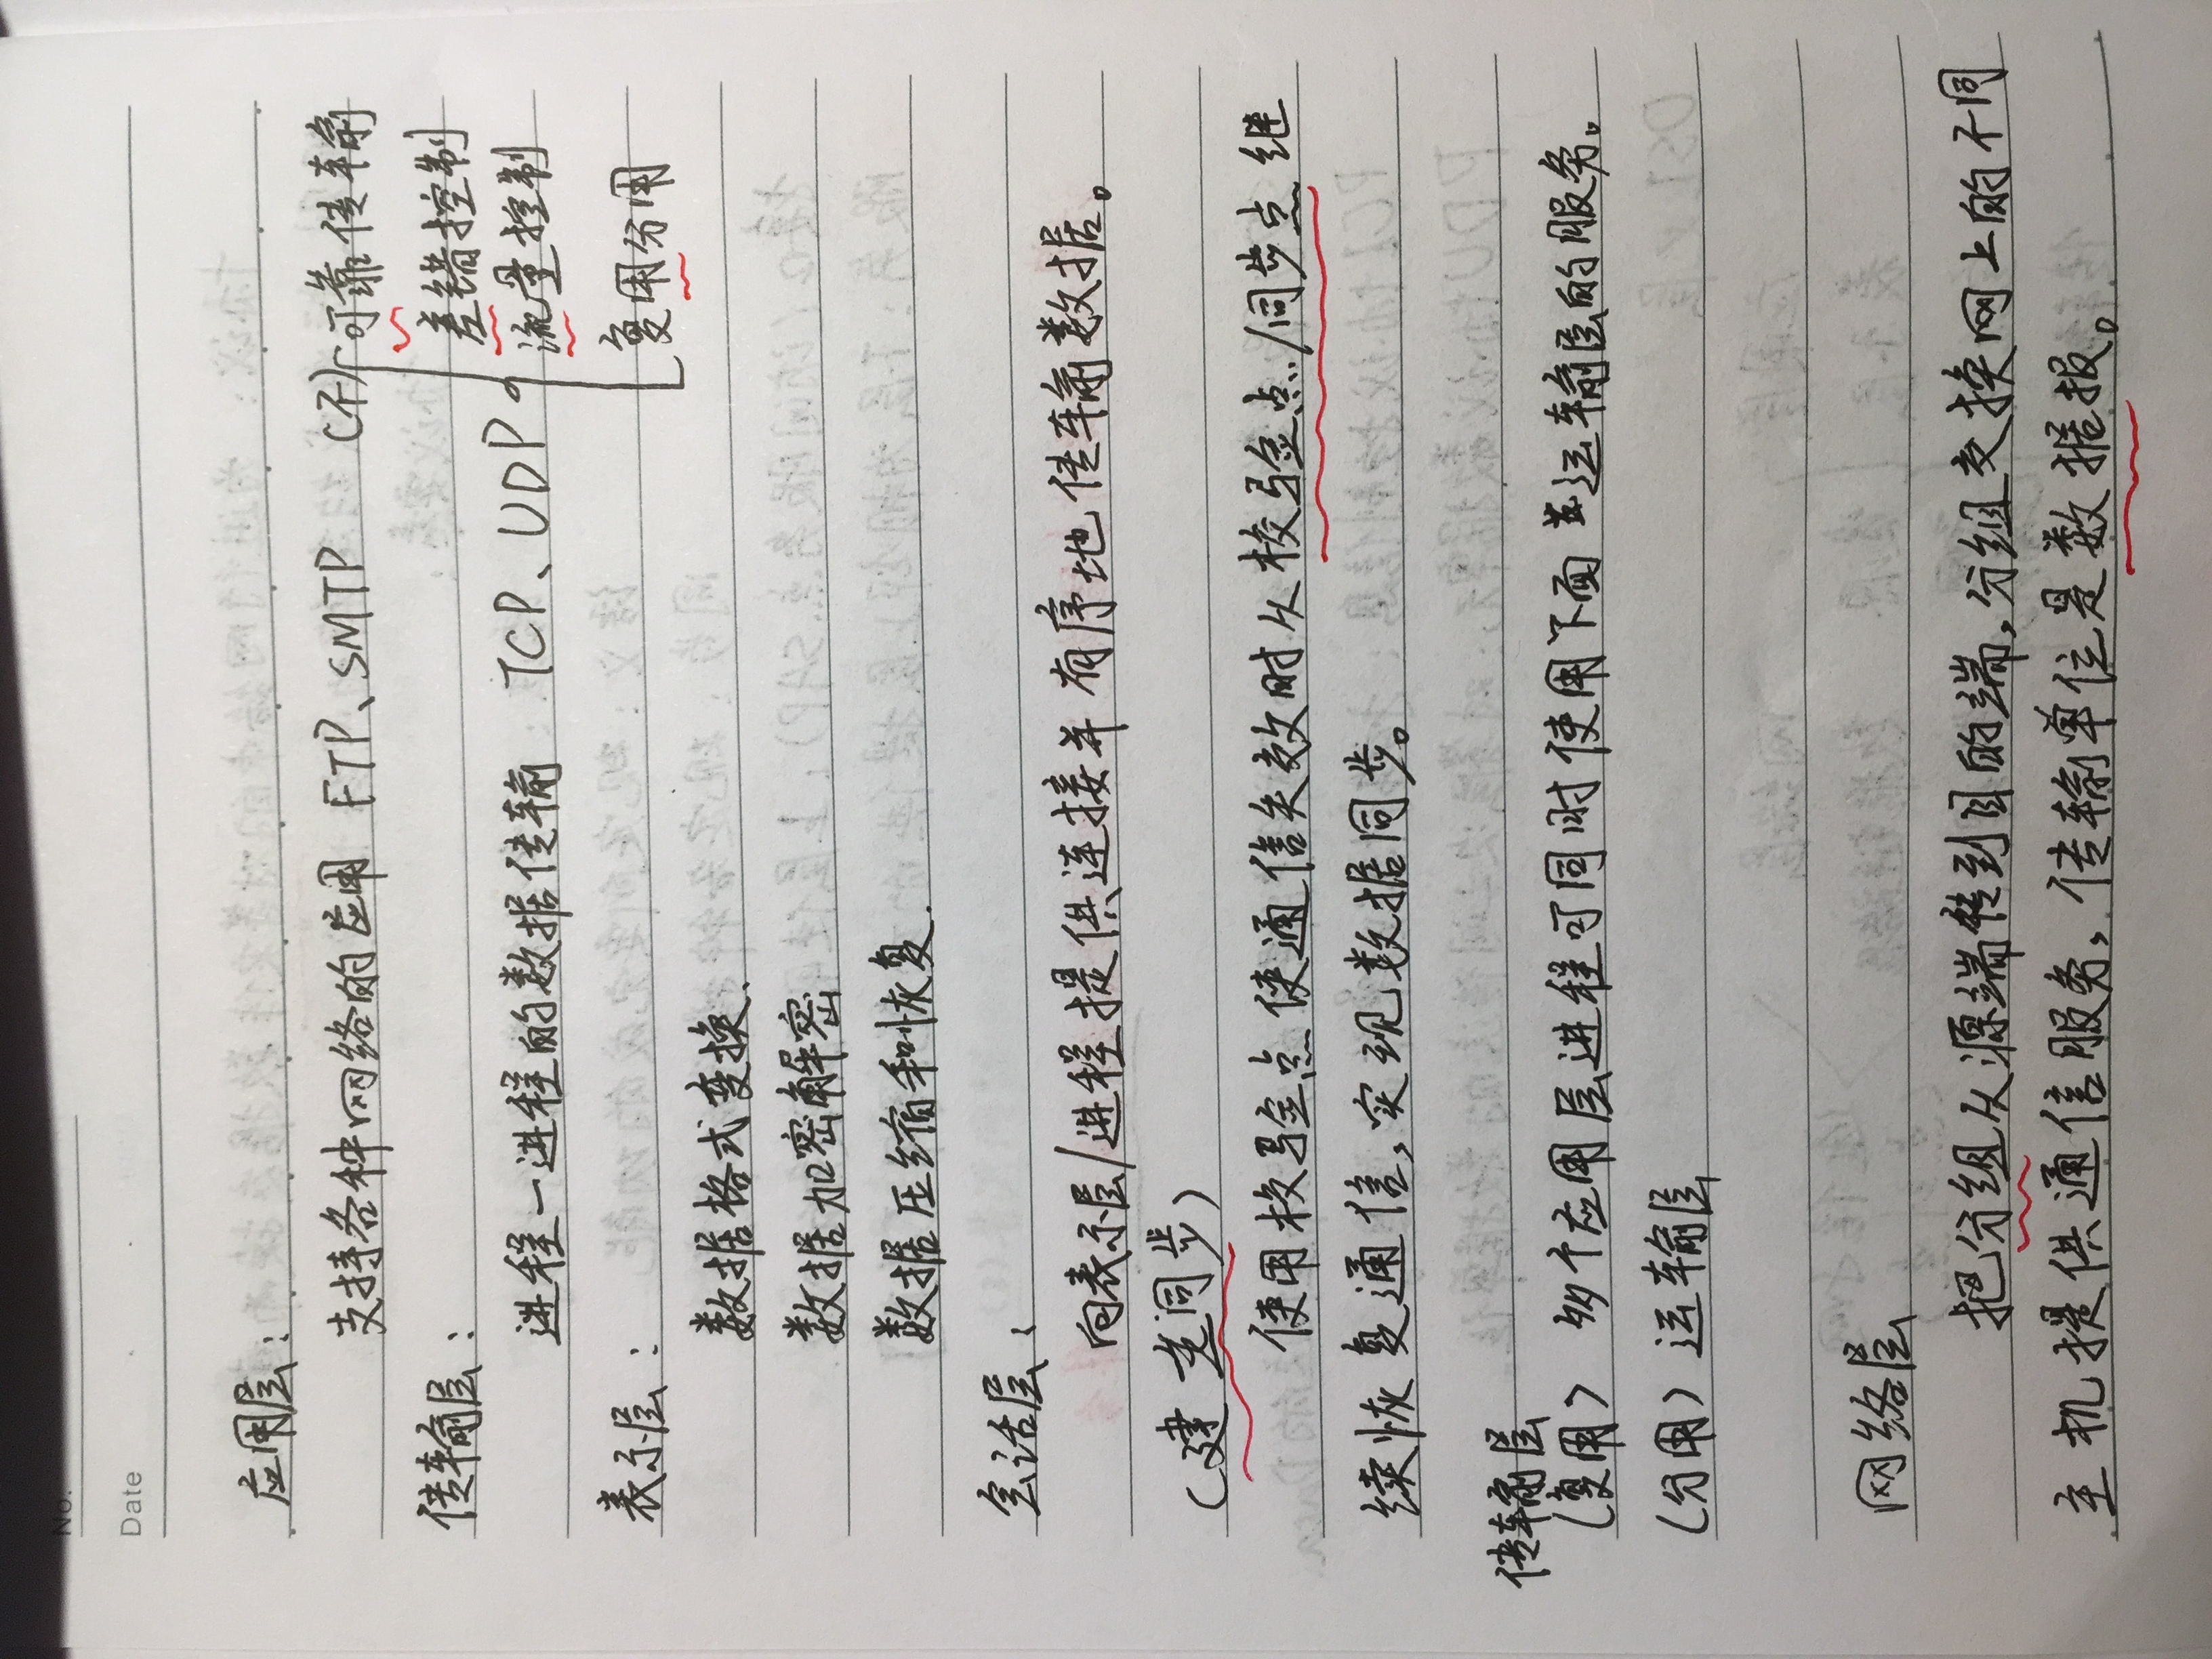 No.
Date
应用层：
支持各种网络的应用 FTP、SMTP (不)可靠传输
传输层：
差错控制
进程—进程的数据传输 TCP、UDP 流量控制
表示层：
复用分用
数据格式变换.
数据加密解密
数据压缩和恢复.
会话层：
向表示层/进程提供连接并有序地传输数据。
(建立同步)
使用校验点使通信失效时从校验点/同步点继
续恢复通信,实现数据同步。
传输层
(复用) 多个应用层进程可同时使用下面运输层的服务。
(分用) 运输层
网络层
把分组从源端传到目的端,分组交换网上的不同
主机提供通信服务,传输单位是数据报。